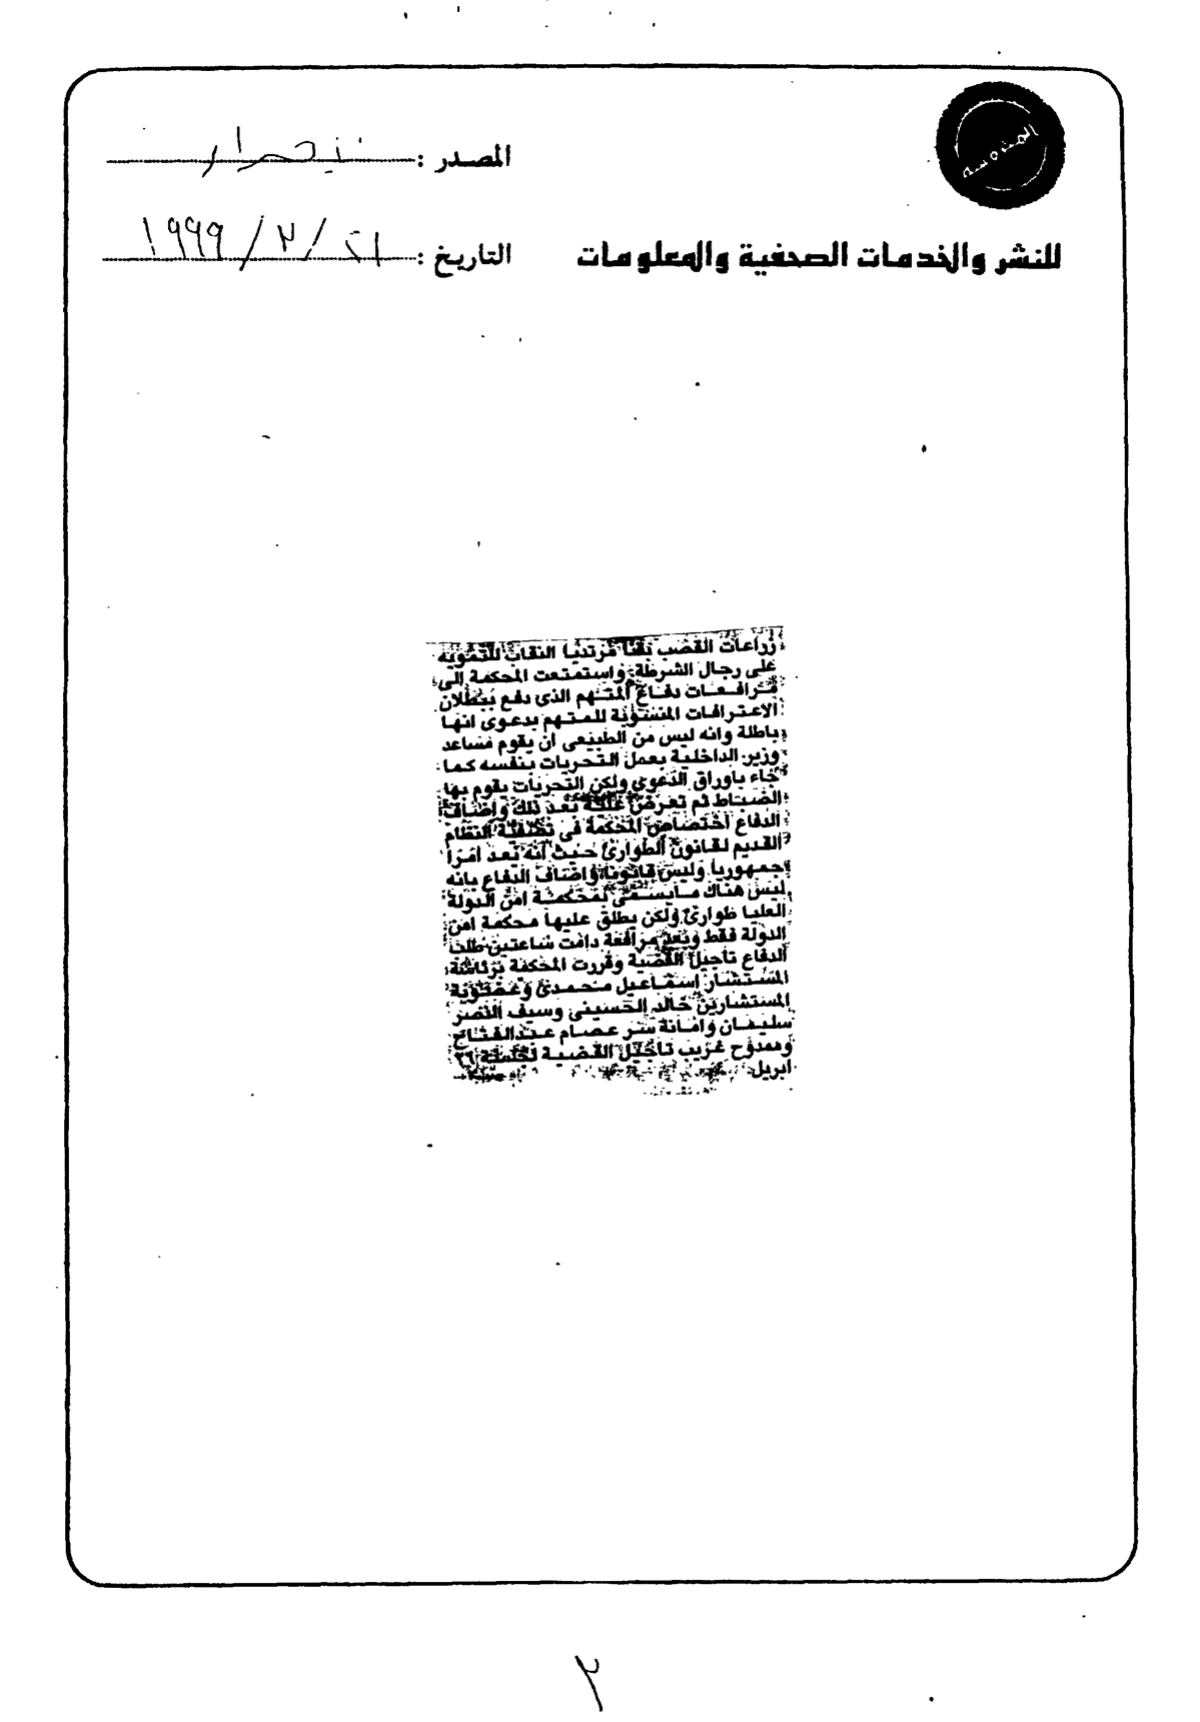 المصدر :
التاريخ : ٢١ / ٣ / ١٩٩٩
للنشر والخدمات الصحفية والمعلومات
زراعات القصب بقنا مرتديا النقاب للتمويه
على رجال الشرطة واستمتعت المحكمة إلى
مرافعات دفاع المتهم الذى دفع ببطلان
الاعترافات المنسوبة للمتهم بدعوى انها
باطلة وانه ليس من الطبيعى ان يقوم مساعد
وزير الداخلية بعمل التحريات بنفسه كما
جاء باوراق الدعوى ولكن التحريات يقوم بها
الضباط ثم تعرض عليه بعد ذلك وأضاف
الدفاع اختصاص المحكمة فى تصفية النظام
القديم لقانون الطوارئ حيث أنه يعد امرا
جمهوريا وليس قانونا وأضاف الدفاع بانه
ليس هناك مايسمى لمحكمة امن الدولة
العليا طوارئ ولكن يطلق عليها محكمة امن
الدولة فقط وبعد مرافعة دامت ساعتين طلب
الدفاع تأجيل القضية وقررت المحكمة برئاسة
المستشار إسماعيل محمدى وعضوية
المستشارين خالد الحسينى وسيف النصر
سليمان وامانة سر عصام عبدالفتاح
وممدوح غريب تأجيل القضية لجلسة ٢٦
ابريل
٣